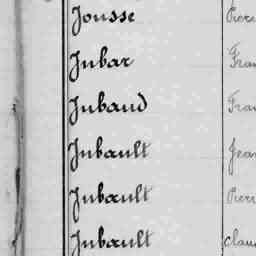 Jousse Pierr
Jubar Fran
Jubaud Fran
Jubault Jean
Jubault Pierr
Jubault Claud